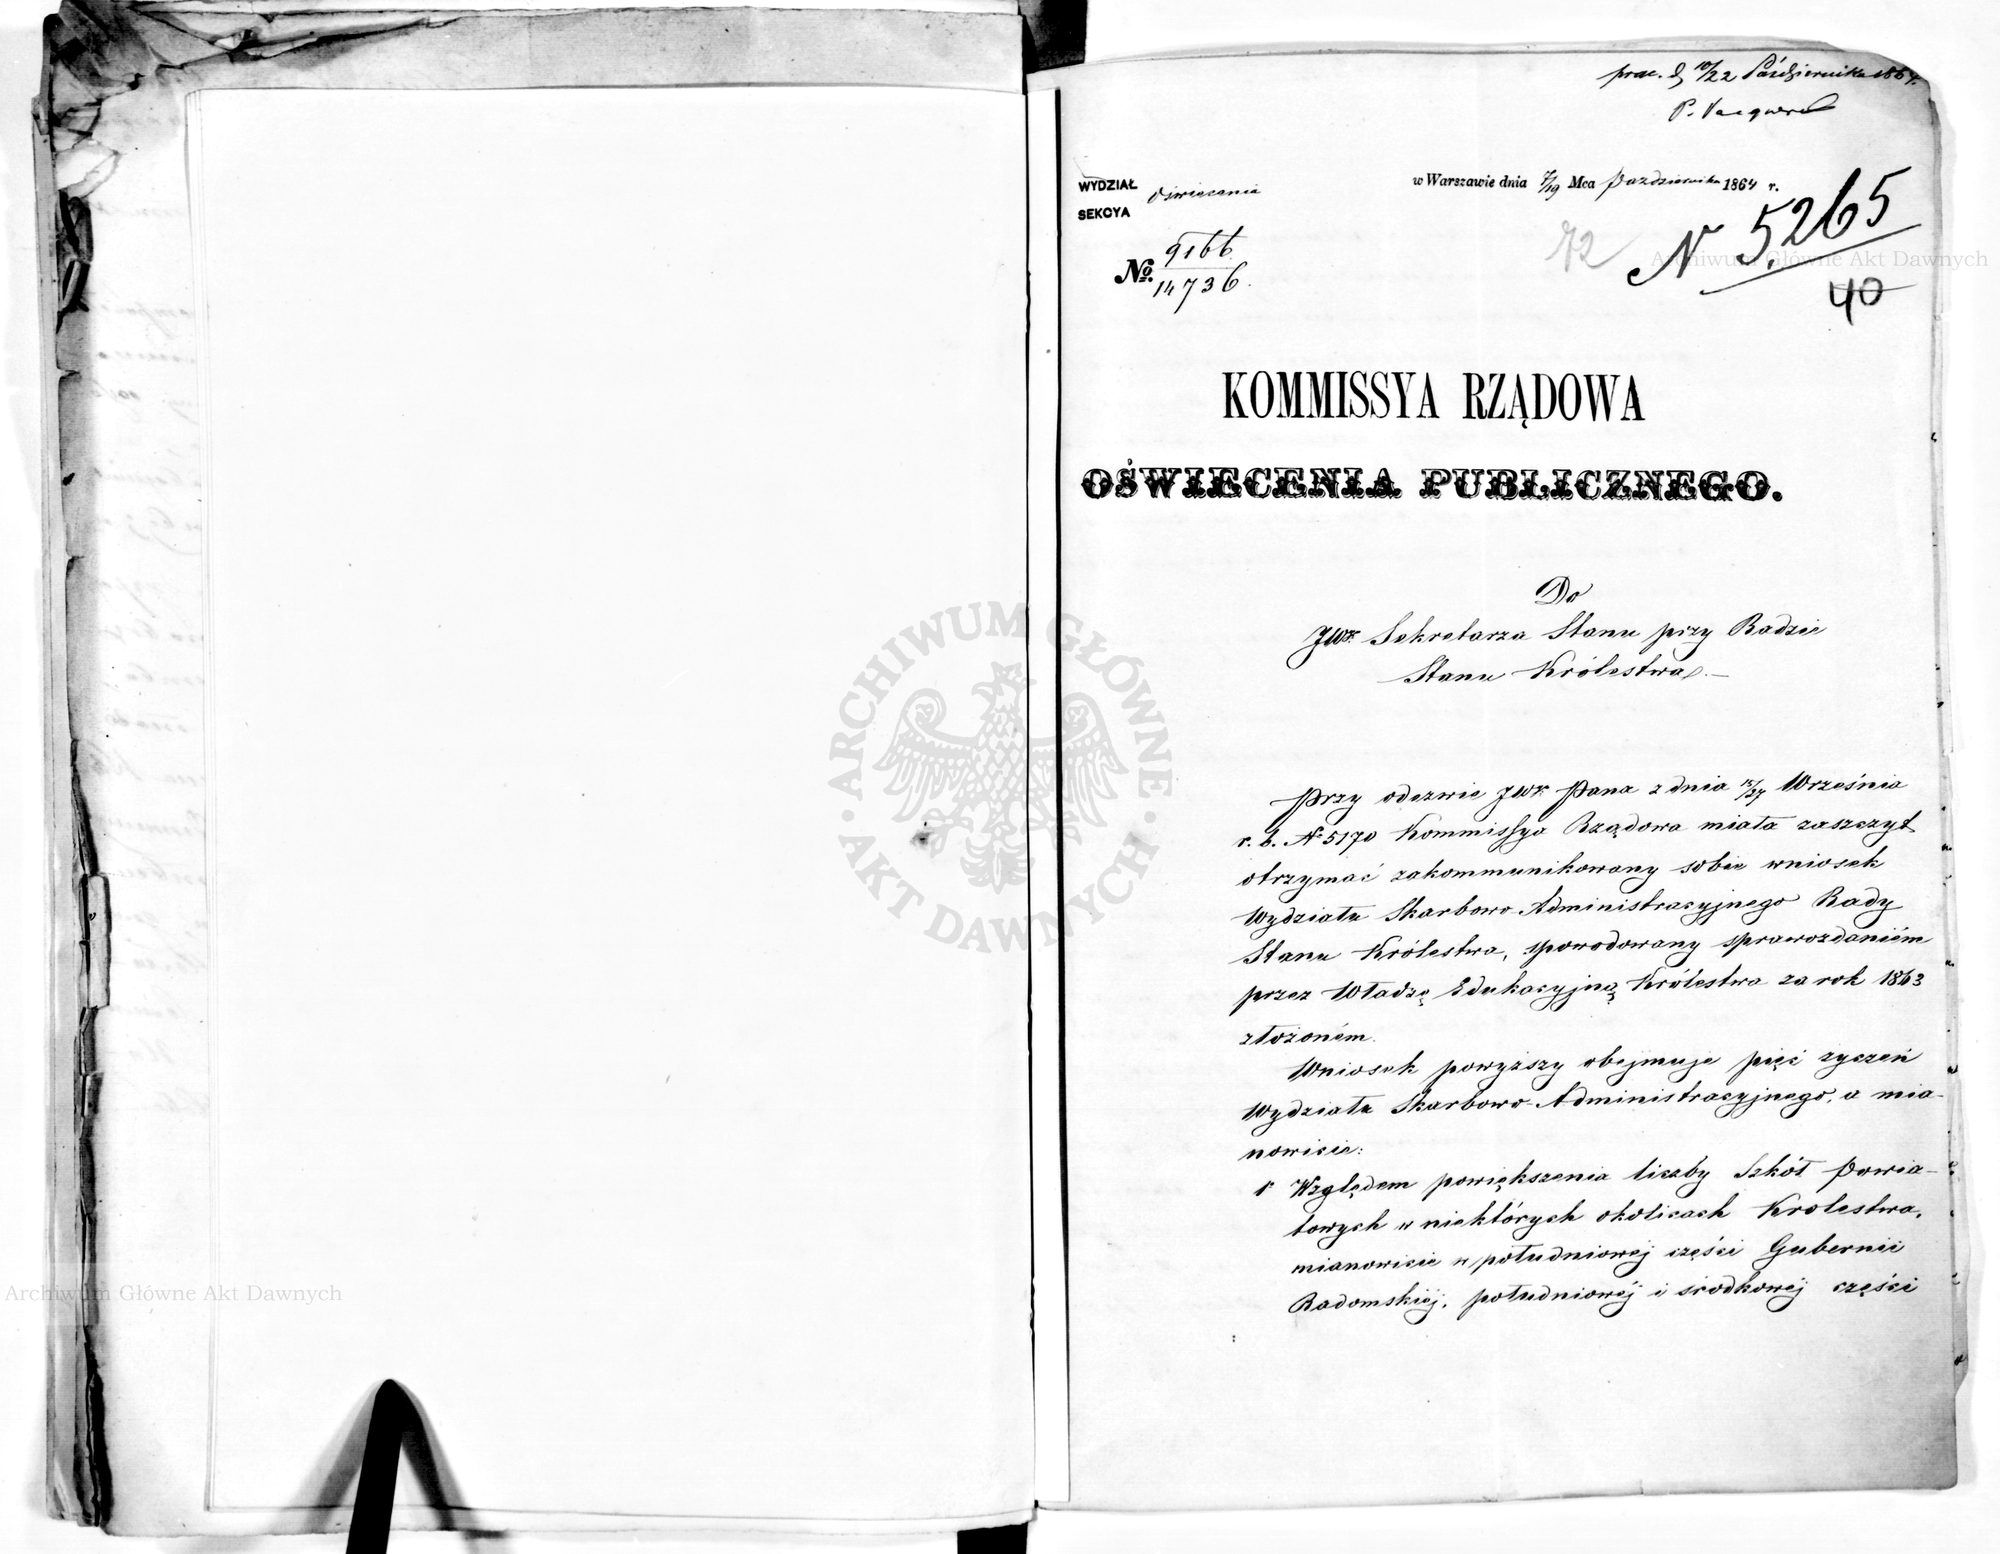 prae. d. 10/22 Października 1864.
w Warszawie dnia 7/19 Mca Października 1864 r.
WYDZIAŁ Oświecenia
SEKCYA
No. 9166/14736.
72
N 5265
40
KOMMISSYA RZĄDOWA
OŚWIECENIA PUBLICZNEGO.
Do
JWgo Sekretarza Stanu przy Radzie
Stanu Królestwa.
Przy odezwie JWgo Pana z dnia 15/27 Września
r. b. N 5170 Kommissya Rządowa miała zaszczyt
otrzymać zakommunikowany sobie wniosek
Wydziału Skarbowo-Administracyjnego Rady
Stanu Królestwa, spowodowany sprawozdaniém
przez Władzę Edukacyjną Królestwa za rok 1863
złożoném.
Wniosek powyższy obejmuje pięć życzeń
Wydziału Skarbowo-Administracyjnego, a mia-
nowicie:
1 Względem powiększenia liczby Szkół Powia-
towych w niektórych okolicach Królestwa,
mianowicie w południowej części Gubernii
Radomskiéj, południowéj i srodkowéj części
ARCHIWUM GŁÓWNE AKT DAWNYCH
Archiwum Główne Akt Dawnych
Archiwum Główne Akt Dawnych